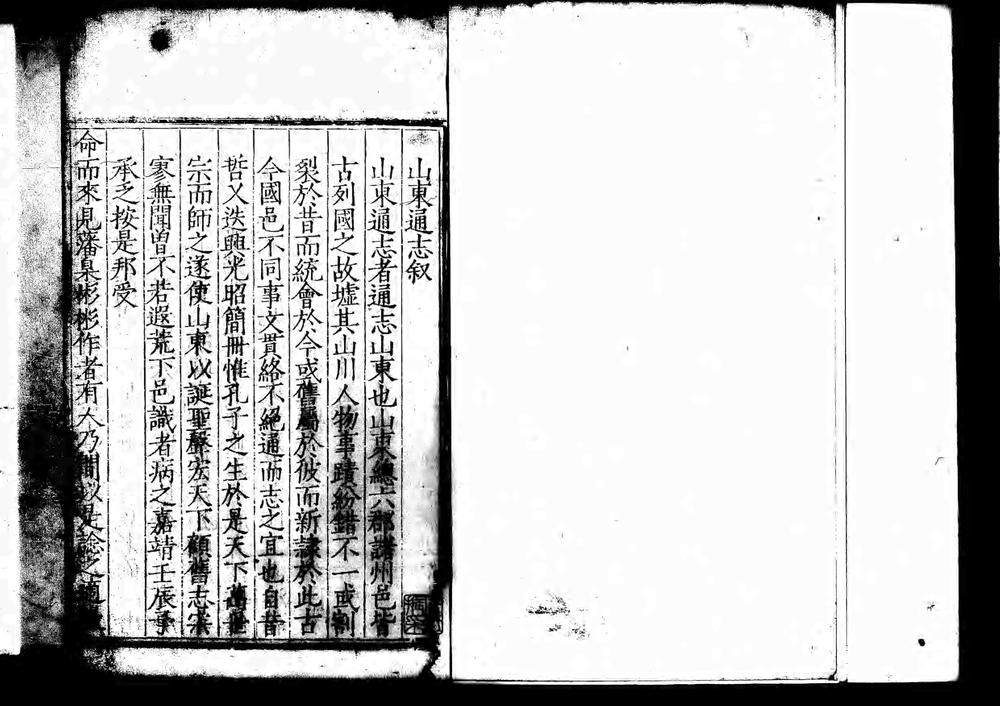 山東通志叙
山東通志者通志山東也山東總六郡諸州邑皆
古列國之故墟其山川人物事蹟紛錯不一或割
裂於昔而統會於今或舊屬於彼而新隷於此古
今國邑不同事文貫絡不絕通而志之宜也自昔
哲人迭興光昭簡冊惟孔子之生於是天下萬世
宗而師之遂使山東以誕聖聲宏天下顧舊志
寥無聞曽不若遐荒下邑識者病之嘉靖壬辰
承乏按是邦受
命而來見藩臬彬彬作者有人乃間以是諗之